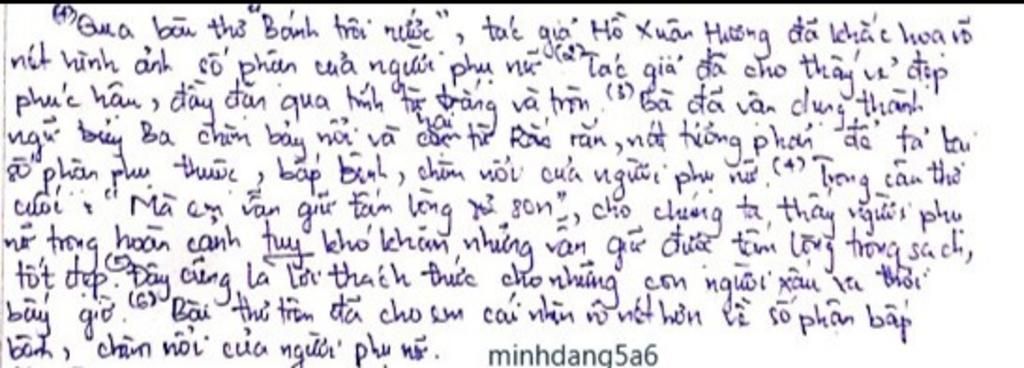 (1) Qua bài thơ "Bánh trôi nước", tác giả Hồ Xuân Hương đã khắc họa rõ
nét hình ảnh số phận của người phụ nữ (2) Tác giả đã cho thấy vẻ đẹp
phúc hậu, đầy đặn qua tính từ trắng và tròn. (3) Bà đã vận dụng thành
ngữ Ba chìm bảy nổi và hai từ rắn, nát tưởng phải để tả
số phận phụ thuộc, bấp bênh, chìm nổi của người phụ nữ. (4) Trong câu thơ
cuối: "Mà em vẫn giữ tấm lòng son", cho chúng ta thấy người phụ
nữ trong hoàn cảnh tuy khó khăn nhưng vẫn giữ được tấm lòng trong sạch,
tốt đẹp. (5) Đây cũng là lời thách thức cho những con người xấu xa thời
bấy giờ. (6) Bài thơ trên đã cho em cái nhìn rõ nét hơn về số phận bấp
bênh, chìm nổi của người phụ nữ.
minhdang5a6